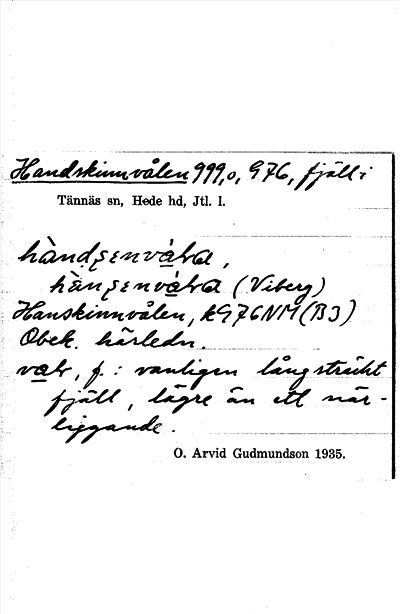 Handskinnvålen 999,0, G76, fjäll i
Tännäs sn, Hede hd, Jtl. l.
(Viberg)
Hanskinnvålen, kG76NM(B3)
Obek. härledn.
f. : vanligen långsträckt
fjäll, lägre än ett när-
liggande.
O. Arvid Gudmundson 1935.